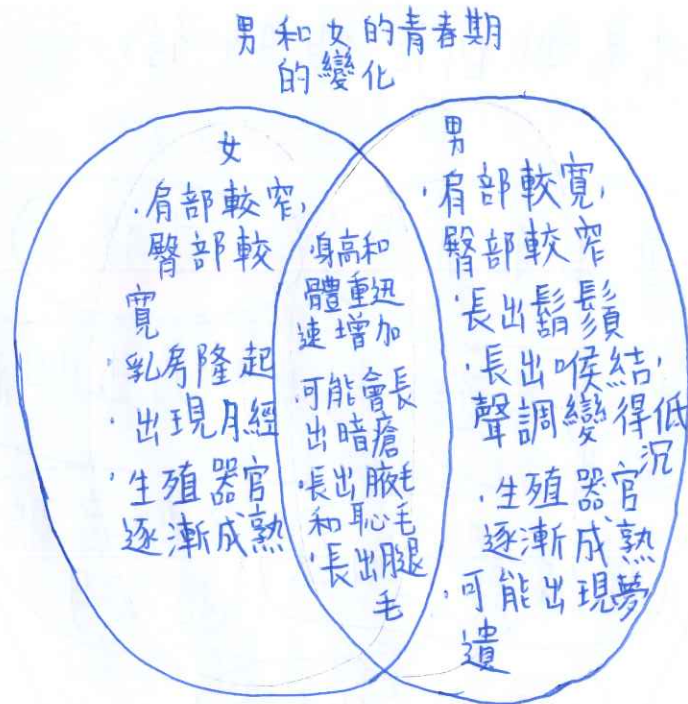 男和女的青春期
的變化
女
·肩部較窄,
臀部較
寬
·乳房隆起
·出現月經
·生殖器官
逐漸成熟
·身高和
體重迅
速增加
·可能會長
出暗瘡
·長出腋毛
和恥毛
·長出腿
毛
男
·肩部較寬,
臀部較窄
·長出鬍鬚
·長出喉結,
聲調變得低
沉
·生殖器官
逐漸成熟
·可能出現夢
遺